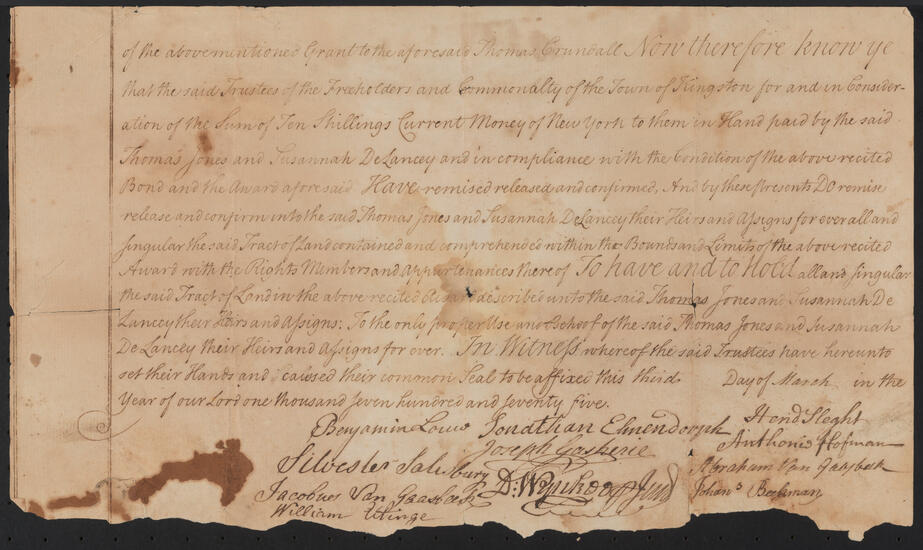 of the abovementioned Grant to the aforesaid Thomas Crundall Now therefore know ye
that the said Trustees of the Freeholders and Commonalty of the Town of Kingston for and in Consider-
ation of the Sum of Ten Shillings Current Money of New York to them in Hand paid by the said
Thomas Jones and Susannah DeLancey and in compliance with the Condition of the above recited
Bond and the Award aforesaid Have remised released and confirmed, And by these Presents Do remise
release and confirm unto the said Thomas Jones and Susannah DeLancey their Heirs and Assigns for ever all and
singular the said Tract of Land contained and comprehended within the Bounds and Limits of the above recited
Award with the Rights Members and Appurtenances thereof To have and to Hold all and singular
the said Tract of Land in the above recited Award described unto the said Thomas Jones and Susannah De
Lancey their Heirs and Assigns: To the only proper Use and Behoof of the said Thomas Jones and Susannah
DeLancey their Heirs and Assigns for ever. In Witness whereof the said Trustees have hereunto
set their Hands and caused their common Seal to be affixed this third Day of March in the
Year of our Lord one thousand seven hundred and seventy five.
Benjamin Louw Jonathan Elmendorph Hend Sleght
Silvester Salsbury Joseph Gasherie Anthonie Hofman
Jacobues Van Gaasbeek D: Wynkoop Jun Abraham Van Gaasbeek
William Eltinge Johans Beekman